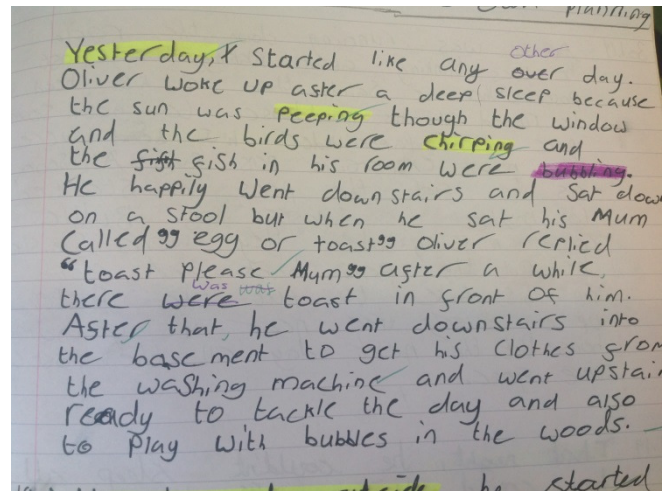 planning
Yesterday, started like any other over day.
Oliver woke up aster a deep sleep because
the sun was peeping though the window
and the birds were chirping and
the fish gish in his room were bubbling.
He happily went downstairs and sat down
on a stool but when he sat his Mum
called 99 egg or toast 99 Oliver replied
"toast please Mum 99 agter a while,
there were was was toast in gront of him.
Aster that, he went downstairs into
the basement to get his clothes grom
the washing machine and went upstair
ready to tackle the day and also
to play with bubbles in the woods.
he started